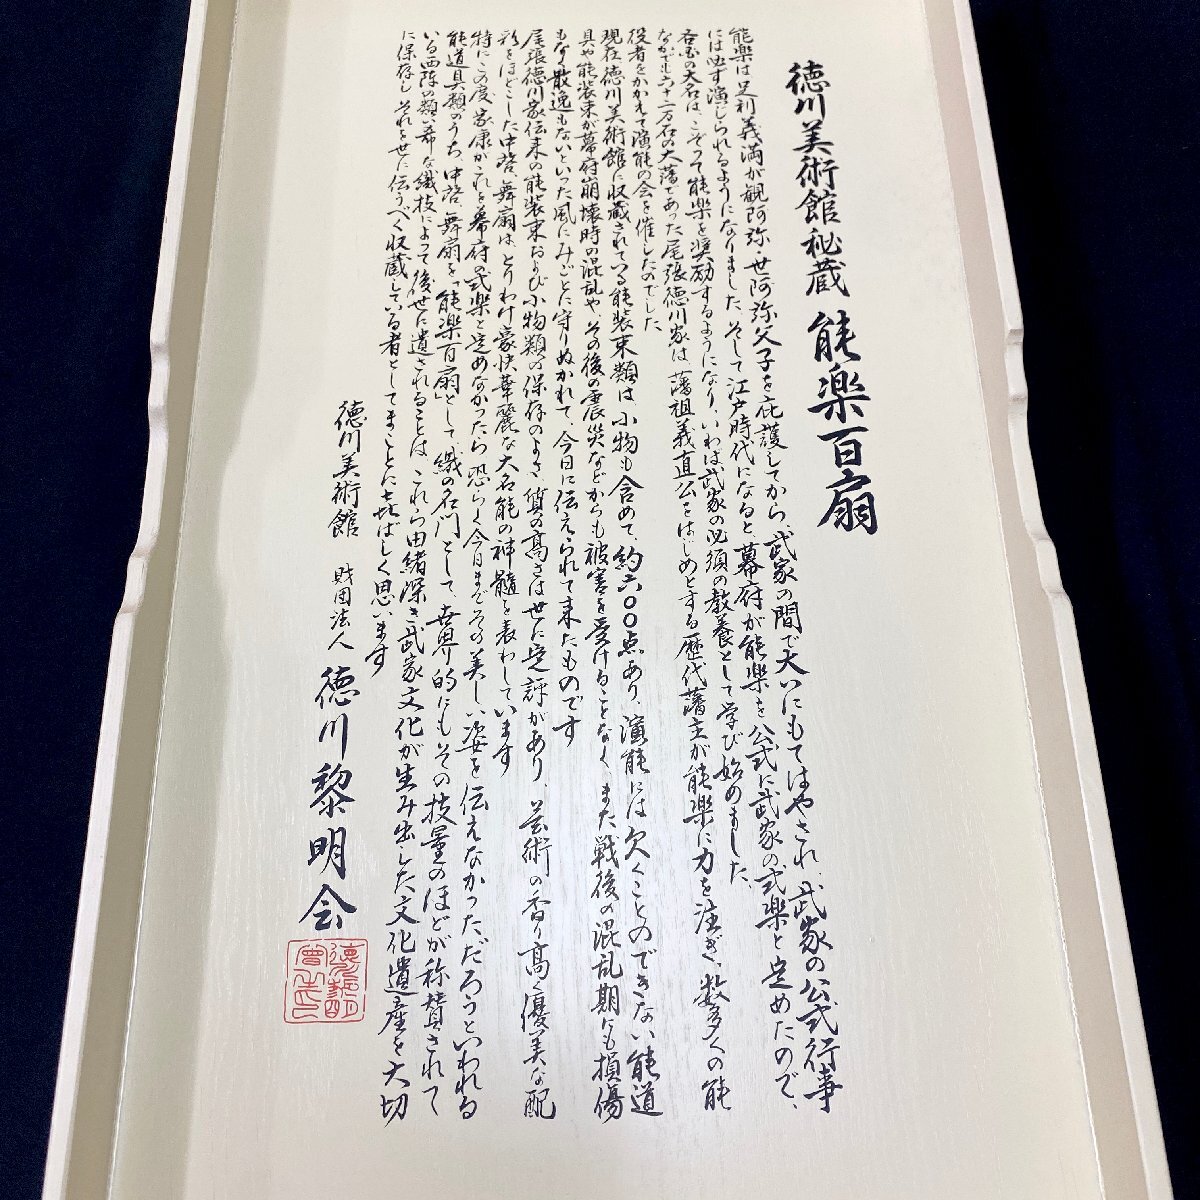 徳川美術館秘蔵 能楽百扇
能楽は足利義満が観阿弥・世阿弥父子を庇護してから、武家の間で大いにもてはやされ、武家の公式行事
には必ず演じられるようになりました。そして江戸時代になると、幕府が能楽を公式に武家の式楽と定めたので、
各国の大名は、こぞって能楽を奨励するようになり、いわば武家の必須の教養として学び始めました。
なかでも六十二万石の大藩であった尾張徳川家は、藩祖義直公をはじめとする歴代藩主が能楽に力を注ぎ、数多くの能
役者をかかえて演能の会を催したのでした。
現在徳川美術館に収蔵されている能装束類は、小物も含めて、約六〇〇点あり、演能には欠くことのできない能道
具や能装束が幕府崩壊時の混乱や、その後の震災などからも被害を受けることなく、また戦後の混乱期にも損傷
もなく散逸もないといった風にみごとに守りぬかれて、今日に伝えられて来たものです
尾張徳川家伝来の能装束および小物類の保存のよさ、質の高さは世に定評があり、芸術の香り高く優美な配
彩をほどこした中啓、舞扇は、とりわけ豪快華麗な大名能の神髄を表わしています
特にこの度、家康がこれを幕府の式楽と定めなかったら恐らく今日までその美しい姿を伝えなかっただろうといわれる
能道具類のうち、中啓、舞扇を「能楽百扇」として、織の名門として、世界的にもその技量のほどが称賛されて
いる西陣の類い希な織技によって後世に遺されることは、これら由緒深き武家文化が生み出した文化遺産を大切
に保存し、それを世に伝うべく収蔵している者としてまことに喜ばしく思います
徳川美術館 財団法人 徳川黎明会
徳川黎明會之印